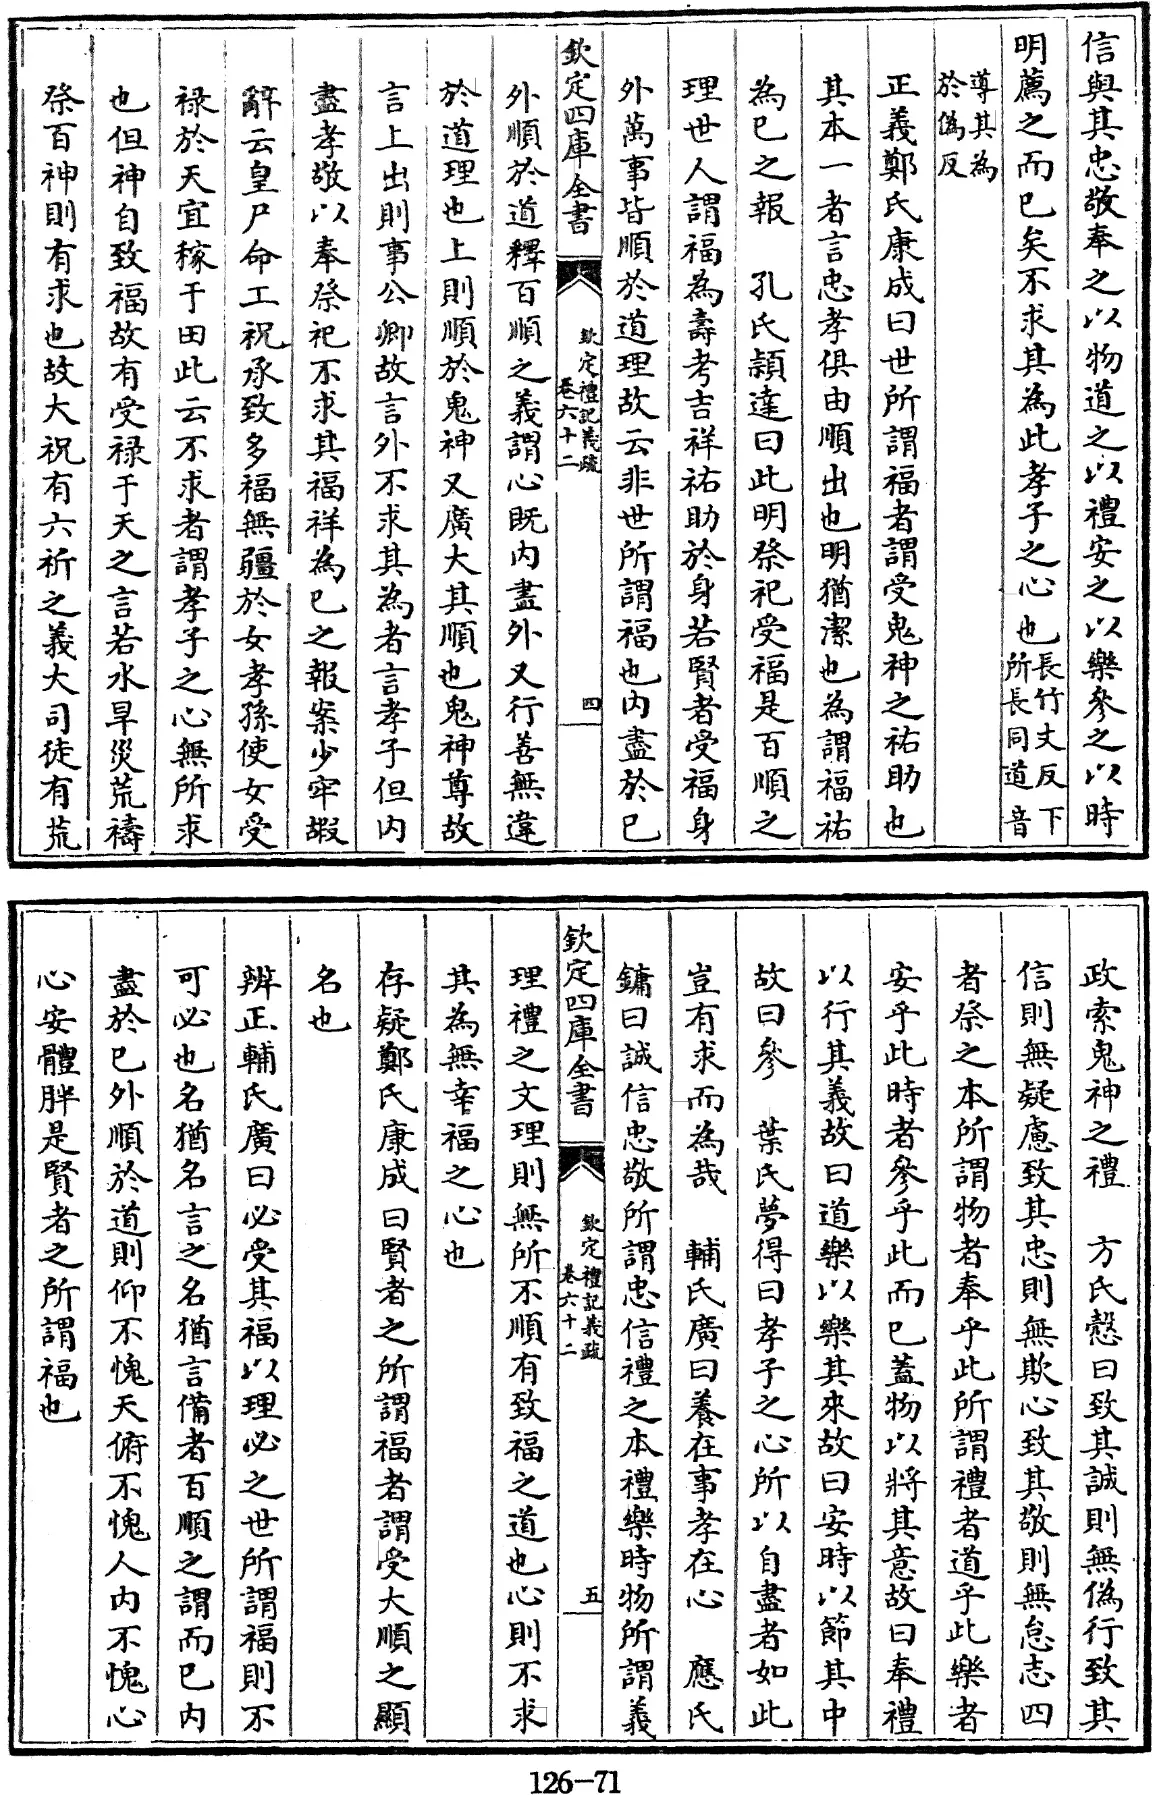 信與其忠敬奉之以物道之以禮安之以樂參之以時
明薦之而已矣不求其為此孝子之心也長竹丈反下所長同道音
導其為於偽反
正義鄭氏康成曰世所謂福者謂受鬼神之祐助也
其本一者言忠孝俱由順出也明猶潔也為謂福祐
為已之報　孔氏頴達曰此明祭祀受福是百順之
理世人謂福為壽考吉祥祐助於身若賢者受福身
外萬事皆順於道理故云非世所謂福也内盡於已
欽定四庫全書　欽定禮記義疏卷六十二　四
外順於道釋百順之義謂心既内盡外又行善無違
於道理也上則順於鬼神又廣大其順也鬼神尊故
言上出則事公卿故言外不求其為者言孝子但内
盡孝敬以奉祭祀不求其福祥為已之報案少牢嘏
辭云皇尸命工祝承致多福無疆於女孝孫使女受
禄於天宜稼于田此云不求者謂孝子之心無所求
也但神自致福故有受禄于天之言若水旱災荒禱
祭百神則有求也故大祝有六祈之義大司徒有荒
政索鬼神之禮　方氏慤曰致其誠則無偽行致其
信則無疑慮致其忠則無欺心致其敬則無怠志四
者祭之本所謂物者奉乎此所謂禮者道乎此樂者
安乎此時者參乎此而已蓋物以將其意故曰奉禮
以行其義故曰道樂以樂其來故曰安時以節其中
故曰參　葉氏夢得曰孝子之心所以自盡者如此
豈有求而為哉　輔氏廣曰養在事孝在心　應氏
鏞曰誠信忠敬所謂忠信禮之本禮樂時物所謂義
欽定四庫全書　欽定禮記義疏卷六十二　五
理禮之文理則無所不順有致福之道也心則不求
其為無幸福之心也
存疑鄭氏康成曰賢者之所謂福者謂受大順之顯
名也
辨正輔氏廣曰必受其福以理必之世所謂福則不
可必也名猶名言之名猶言備者百順之謂而已内
盡於已外順於道則仰不愧天俯不愧人内不愧心
心安體胖是賢者之所謂福也
126-71